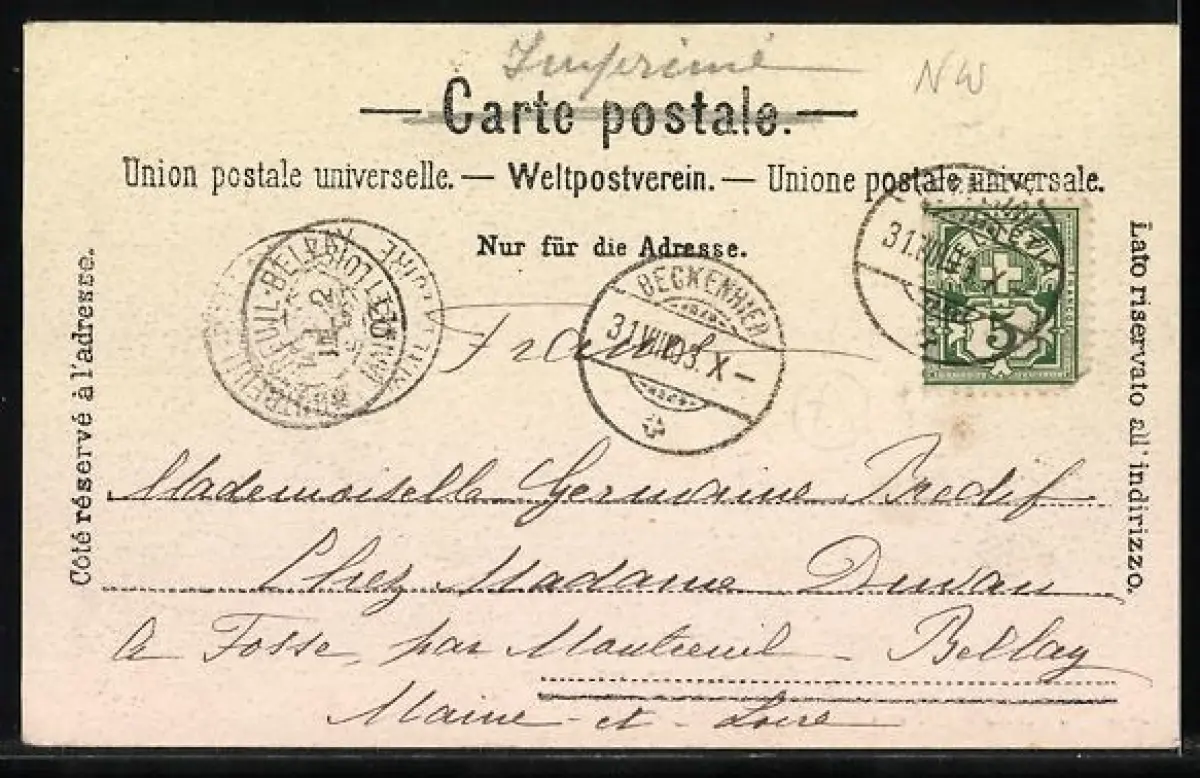 Imprimé
NW
— Carte postale. —
Union postale universelle. — Weltpostverein. — Unione postale universale.
Nur für die Adresse.
Côté réservé à l'adresse.
Lato riservato all' indirizzo.
MONTREUIL-BELLAY
MAINE-ET-LOIRE
BECKENRIED
31.VIII.03.X —
31.VIII.03.X
HELVETIA
5
France
Mademoiselle Germaine Bredif
Chez Madame Duvau
à Fosse, par Montreuil - Bellay
Maine - et - Loire